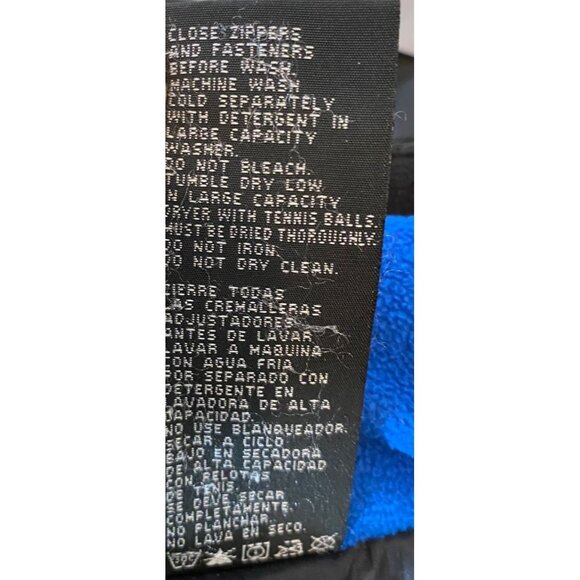 CLOSE ZIPPERS
AND FASTENERS
BEFORE WASH
MACHINE WASH
COLD SEPARATELY
WITH DETERGENT IN
LARGE CAPACITY
WASHER.
DO NOT BLEACH.
TUMBLE DRY LOW
IN LARGE CAPACITY
DRYER WITH TENNIS BALLS.
MUST BE DRIED THOROUGHLY.
DO NOT IRON
DO NOT DRY CLEAN.
CIERRE TODAS
LAS CREMALLERAS
ADJUSTADORES
ANTES DE LAVAR
LAVAR A MAQUINA
CON AGUA FRIA
POR SEPARADO CON
DETERGENTE EN
LAVADORA DE ALTA
CAPACIDAD.
NO USE BLANQUEADOR.
SECAR A CICLO
BAJO EN SECADORA
DE ALTA CAPACIDAD
CON PELOTAS
DE TENIS.
SE DEVE SECAR
COMPLETAMENTE.
NO PLANCHAR.
NO LAVA EN SECO.